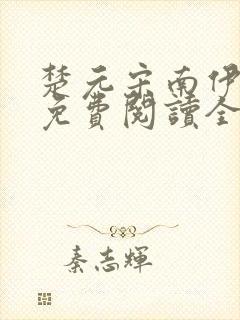 楚元宗南伊
免費閱讀全
秦志輝